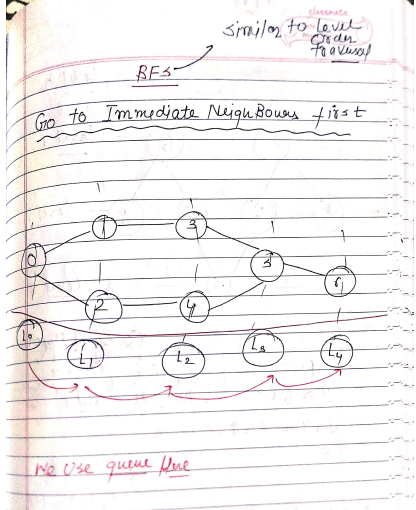 similar to Level
Order
Traversal
BFS
Go to Immediate Neighbours first
1 3
0 3
2 4
L0 L1 L2 L3 L4
We use queue Here